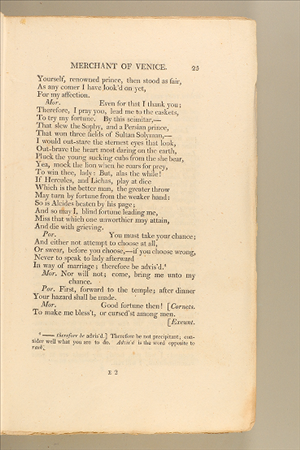 MERCHANT OF VENICE. 25
Yourself, renowned prince, then stood as fair,
As any comer I have look'd on yet,
For my affection.
Mor. Even for that I thank you;
Therefore, I pray you, lead me to the caskets,
To try my fortune. By this scimitar,—
That slew the Sophy, and a Persian prince,
That won three fields of Sultan Solyman,—
I would out-stare the sternest eyes that look,
Out-brave the heart most daring on the earth,
Pluck the young sucking cubs from the she bear,
Yea, mock the lion when he roars for prey,
To win thee, lady: But, alas the while!
If Hercules, and Lichas, play at dice
Which is the better man, the greater throw
May turn by fortune from the weaker hand:
So is Alcides beaten by his page;
And so may I, blind fortune leading me,
Miss that which one unworthier may attain,
And die with grieving.
Por. You must take your chance;
And either not attempt to choose at all,
Or swear, before you choose,—if you choose wrong,
Never to speak to lady afterward
In way of marriage; therefore be advis'd.⁴
Mor. Nor will not; come, bring me unto my
chance.
Por. First, forward to the temple; after dinner
Your hazard shall be made.
Mor. Good fortune then! [Cornets.
To make me bless't, or cursed'st among men.
[Exeunt.
⁴ —— therefore be advis'd.] Therefore be not precipitant; con-
sider well what you are to do. Advis'd is the word opposite to
rash.
E 2